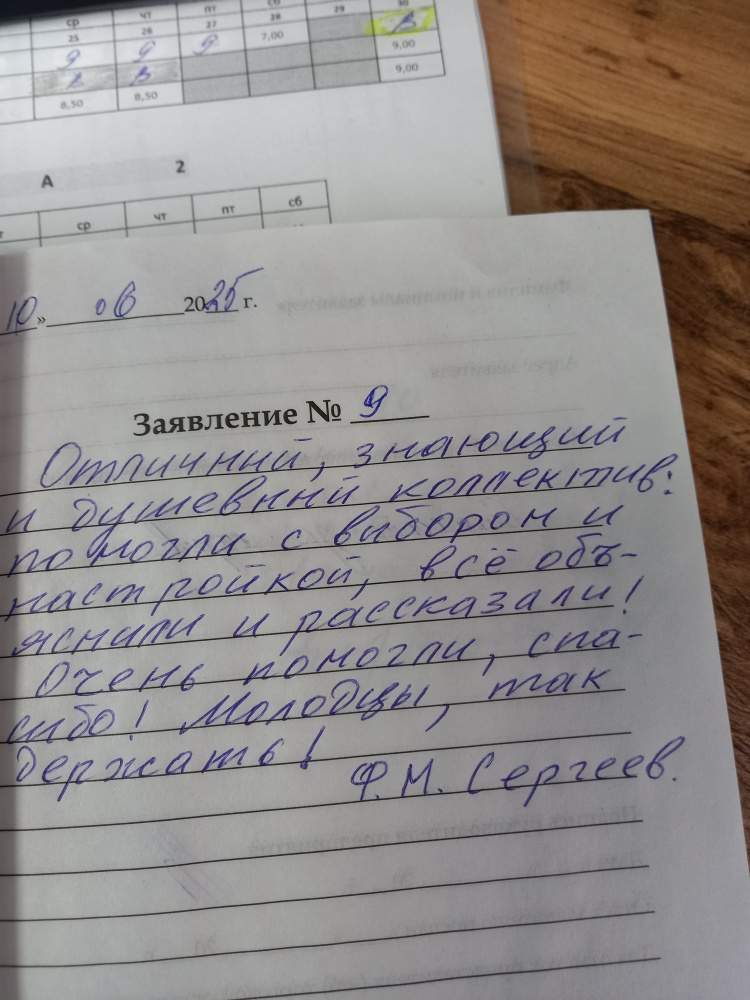 ср чт пт сб
25 26 27 28 29 30
9 9 9 7,00 В
В В 9,00
8,50 8,50 9,00
А 2
ср чт пт сб
10 » 06 2025 г.
Заявление № 9
Отличный, знающий
и душевный коллектив:
помогли с выбором и
настройкой, всё объ-
яснили и рассказали!
Очень помогли, спа-
сибо! Молодцы, так
держать!
Ф.М. Сергеев.